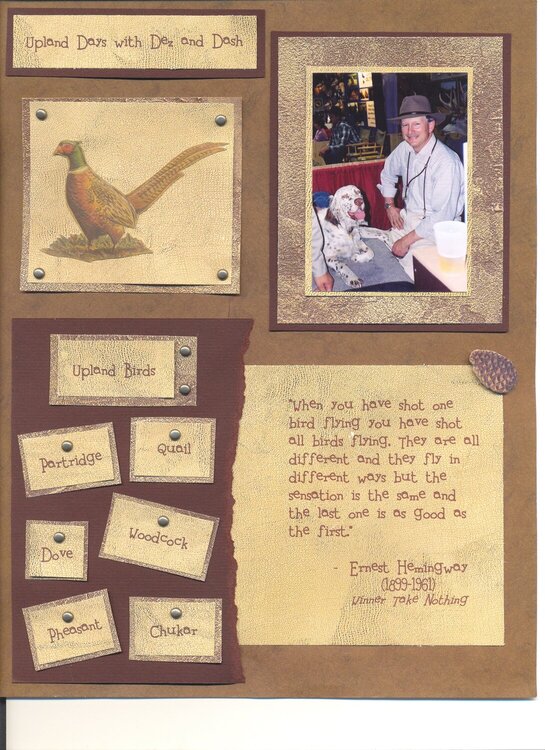 Upland Days with Dez and Dash
Upland Birds
Partridge
Quail
Dove
Woodcock
Pheasant
Chukar
"When you have shot one
bird flying you have shot
all birds flying. They are all
different and they fly in
different ways but the
sensation is the same and
the last one is as good as
the first."
- Ernest Hemingway
(1899-1961)
Winner Take Nothing